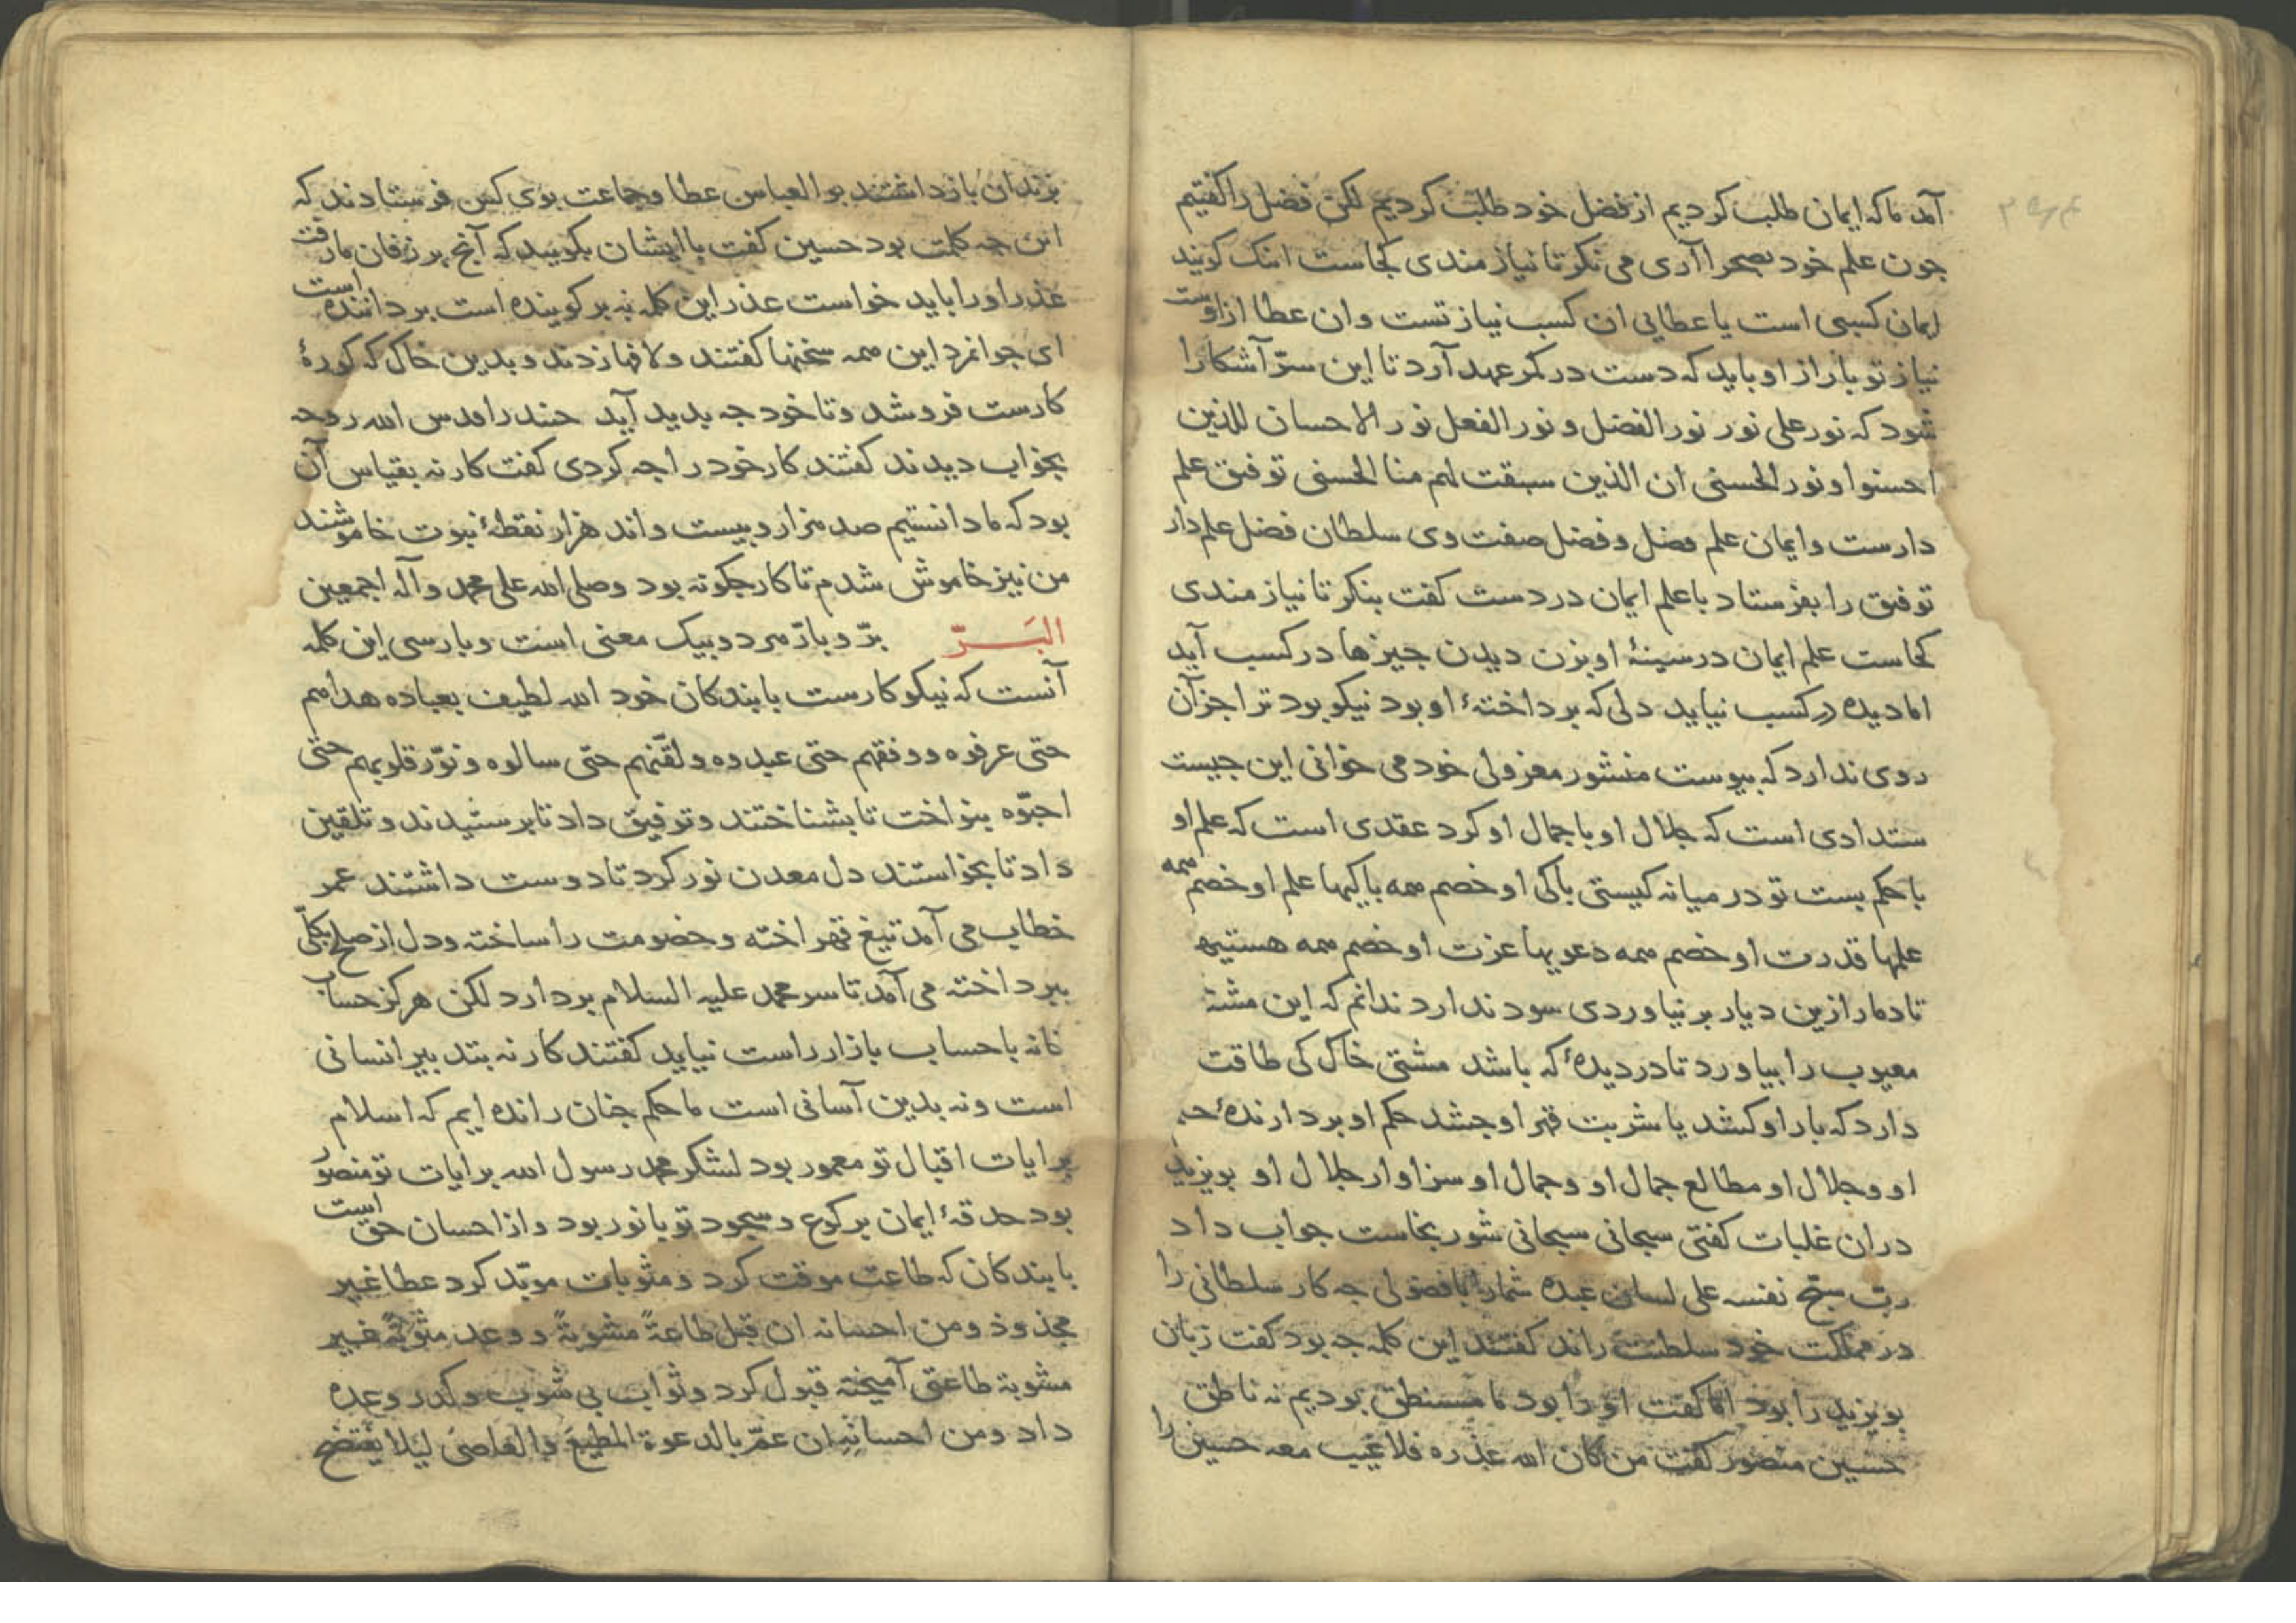 آمد ما که ایمان طلب کردیم از فضل خود طلب کردیم لکن فضل را کفتیم
جون علم خود بصحرا آری می نکر تا نیاز مندی کجاست اینک کویند
ایمان کسبی است یا عطایی ان کسب نیاز تست وان عطا از اوست
نیاز تو با راز او باید که دست در کمر عهد آرد تا این سرّ آشکارا
شود که نور علی نور نور الفضل و نور الفعل نور الاحسان للذین
احسنوا و نور الحسنی ان الذین سبقت لهم منا الحسنی توفیق علم
دارست وایمان علم فضل و فضل صفت وی سلطان فضل علم دار
توفیق را بفرستاد با علم ایمان در دست کفت بنکر تا نیاز مندی
کجاست علم ایمان در سینهٔ او بزن دیدن جیزها در کسب آید
اما دیده در کسب نیاید دلی که برداختهٔ او بود نیکو بود ترا جز آن
روی ندارد که بیوست منشور معزولی خود می خوانی این جیست
ستدادی است که جلال او با جمال او کرد عقدی است که علم او
با حکم بست تو در میانه کیستی باکی او خصم همه باکیها علم او خصم همه
علمها قدرت او خصم همه دعویها عزت او خصم همه هستیها
تا دمار ازین دیار بر نیاوردی سود ندارد ندانم که این مشتهٔ
معیوب را بیاورد تا در دیدهٔ که باشد مشتی خاک کی طاقت
دارد که بار او کشد یا شربت قهر او جشد حکم او بردارندهٔ حکم
او و جلال او مطالع جمال او و جمال او سزاوار جلال او بویزید
دران غلبات کفتی سبحانی سبحانی شور بخاست جواب داد
ربّ سبّح نفسه علی لسان عبده شمارا با فضولی جه کار سلطانی را
در مملکت خود سلطنت راند کفتند این کلمه جه بود کفت زبان
بویزید را بود اما کفت او را بود ما مستنطق بودیم نه ناطق
حسین منصور کفت من کان الله عذره فلا عیب معه حسین را
بزندان بازداشتند بو العباس عطا وجماعت بوی کس فرستادند که
این جه کلمت بود حسین کفت با ایشان بکویید که آنج بر زفان ما رفت
عذر او را باید خواست عذر این کلمه نه بر کوینده است بر داننده است
ای جوانمرد این همه سخنها کفتند ولافها زدند وبدین خاک که کورهٔ
کارست فرو شد وتا خود جه بدید آید جنید را قدس الله روحه
بخواب دیدند کفتند کار خود را جه کردی کفت کار نه بقیاس آن
بود که ما دانستیم صد هزار و بیست و اند هزار نقطهٔ نبوت خاموشند
من نیز خاموش شدم تا کار جکونه بود وصلی الله علی محمد وآله اجمعین
البَـرّ برّ و بارّ هر دو بیک معنی است وبارسی این کلمه
آنست که نیکو کارست با بندکان خود الله لطیف بعباده هداهم
حتی عرفوه ووفقهم حتی عبدوه ولقّنهم حتّی سالوه ونوّر قلوبهم حتّی
احبّوه بنواخت تا بشناختند وتوفیق داد تا برستیدند و تلقین
داد تا بخواستند دل معدن نور کرد تا دوست داشتند عمر
خطاب می آمد تیغ قهر اخته و خصومت را ساخته ودل از صلح بکلّی
ببرداخته می آمد تا سر محمد علیه السلام بردارد لکن هرکز حساب
خانه با حساب بازار راست نیاید کفتند کار نه بتدبیر انسانی
است ونه بدین آسانی است ما حکم جنان رانده ایم که اسلام
برایات اقبال تو معمور بود لشکر محمد رسول الله برایات تو منصور
بود حدقهٔ ایمان برکوع وسجود تو با نور بود واز احسان حق است
با بندکان که طاعت موقت کرد ومثوبات موبّد کرد عطا غیر
مجذوذ ومن احسانه ان قبل طاعةً مشوبةً ووعد مثوبةً غیر
مشوبة طاعتی آمیخته قبول کرد وثواب بی شوب وکدر وعده
داد ومن احسانِهِ ان عمّ بالدعوة المطیعَ والعاصیَ لیلا یفتضح